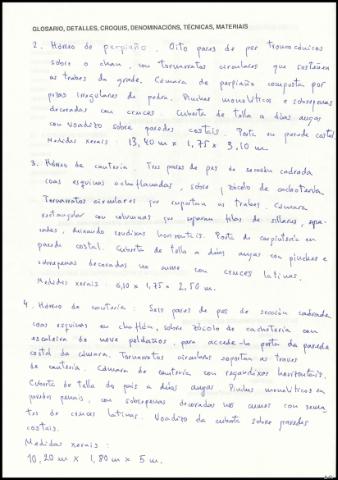 GLOSARIO, DETALLES, CROQUIS, DENOMINACIÓNS, TÉCNICAS, MATERIAIS
2. Hórreo de perpiaño. Oito pares de pes troncocónicos
sobre o chan, con tornarratos circulares que sosteñen
as trabes da grade. Cámara de perpiaño composta por
pezas irregulares de pedra. Pinches monolíticos e sobrepenas
decoradas con cruces. Cuberta de tella a dúas augas
con voadizo sobre paredes costais. Porta en parede costal
Medidas xerais: 13,40 m x 1,75 x 3,10 m
3. Hórreo de cantería. Tres pares de pes de sección cadrada
coas esquinas achaflanadas, sobre zócolo de cachotería
Tornarratos circulares que soportan as trabes. Cámara
rectangular con columnas que separan filas de sillares,
deixando rendixas horizontais. Porta de carpintería en
parede costal. Cuberta de tella a dúas augas con pinches e
sobrepenas decoradas no cume con cruces latinas.
Medidas xerais: 6,10 x 1,75 x 2,50 m.
4. Hórreo de cantería: Seis pares de pes de sección cadrada
coas esquinas en chaflán, sobre zócolo de cachotería con
escaleira de nove peldaños, para acceder á porta da parede
costal da cámara. Tornarratos circulares soportan as traves
de cantería. Cámara de cantería con rendixas horizontais.
Cuberta de tella do país a dúas augas. Pinches monolíticos en
con sobrepenas decoradas nos cumes con
de cruces latinas. Voadizo da cuberta sobre paredes
costais.
Medidas xerais:
10,20 m x 1,80 m x 5 m.